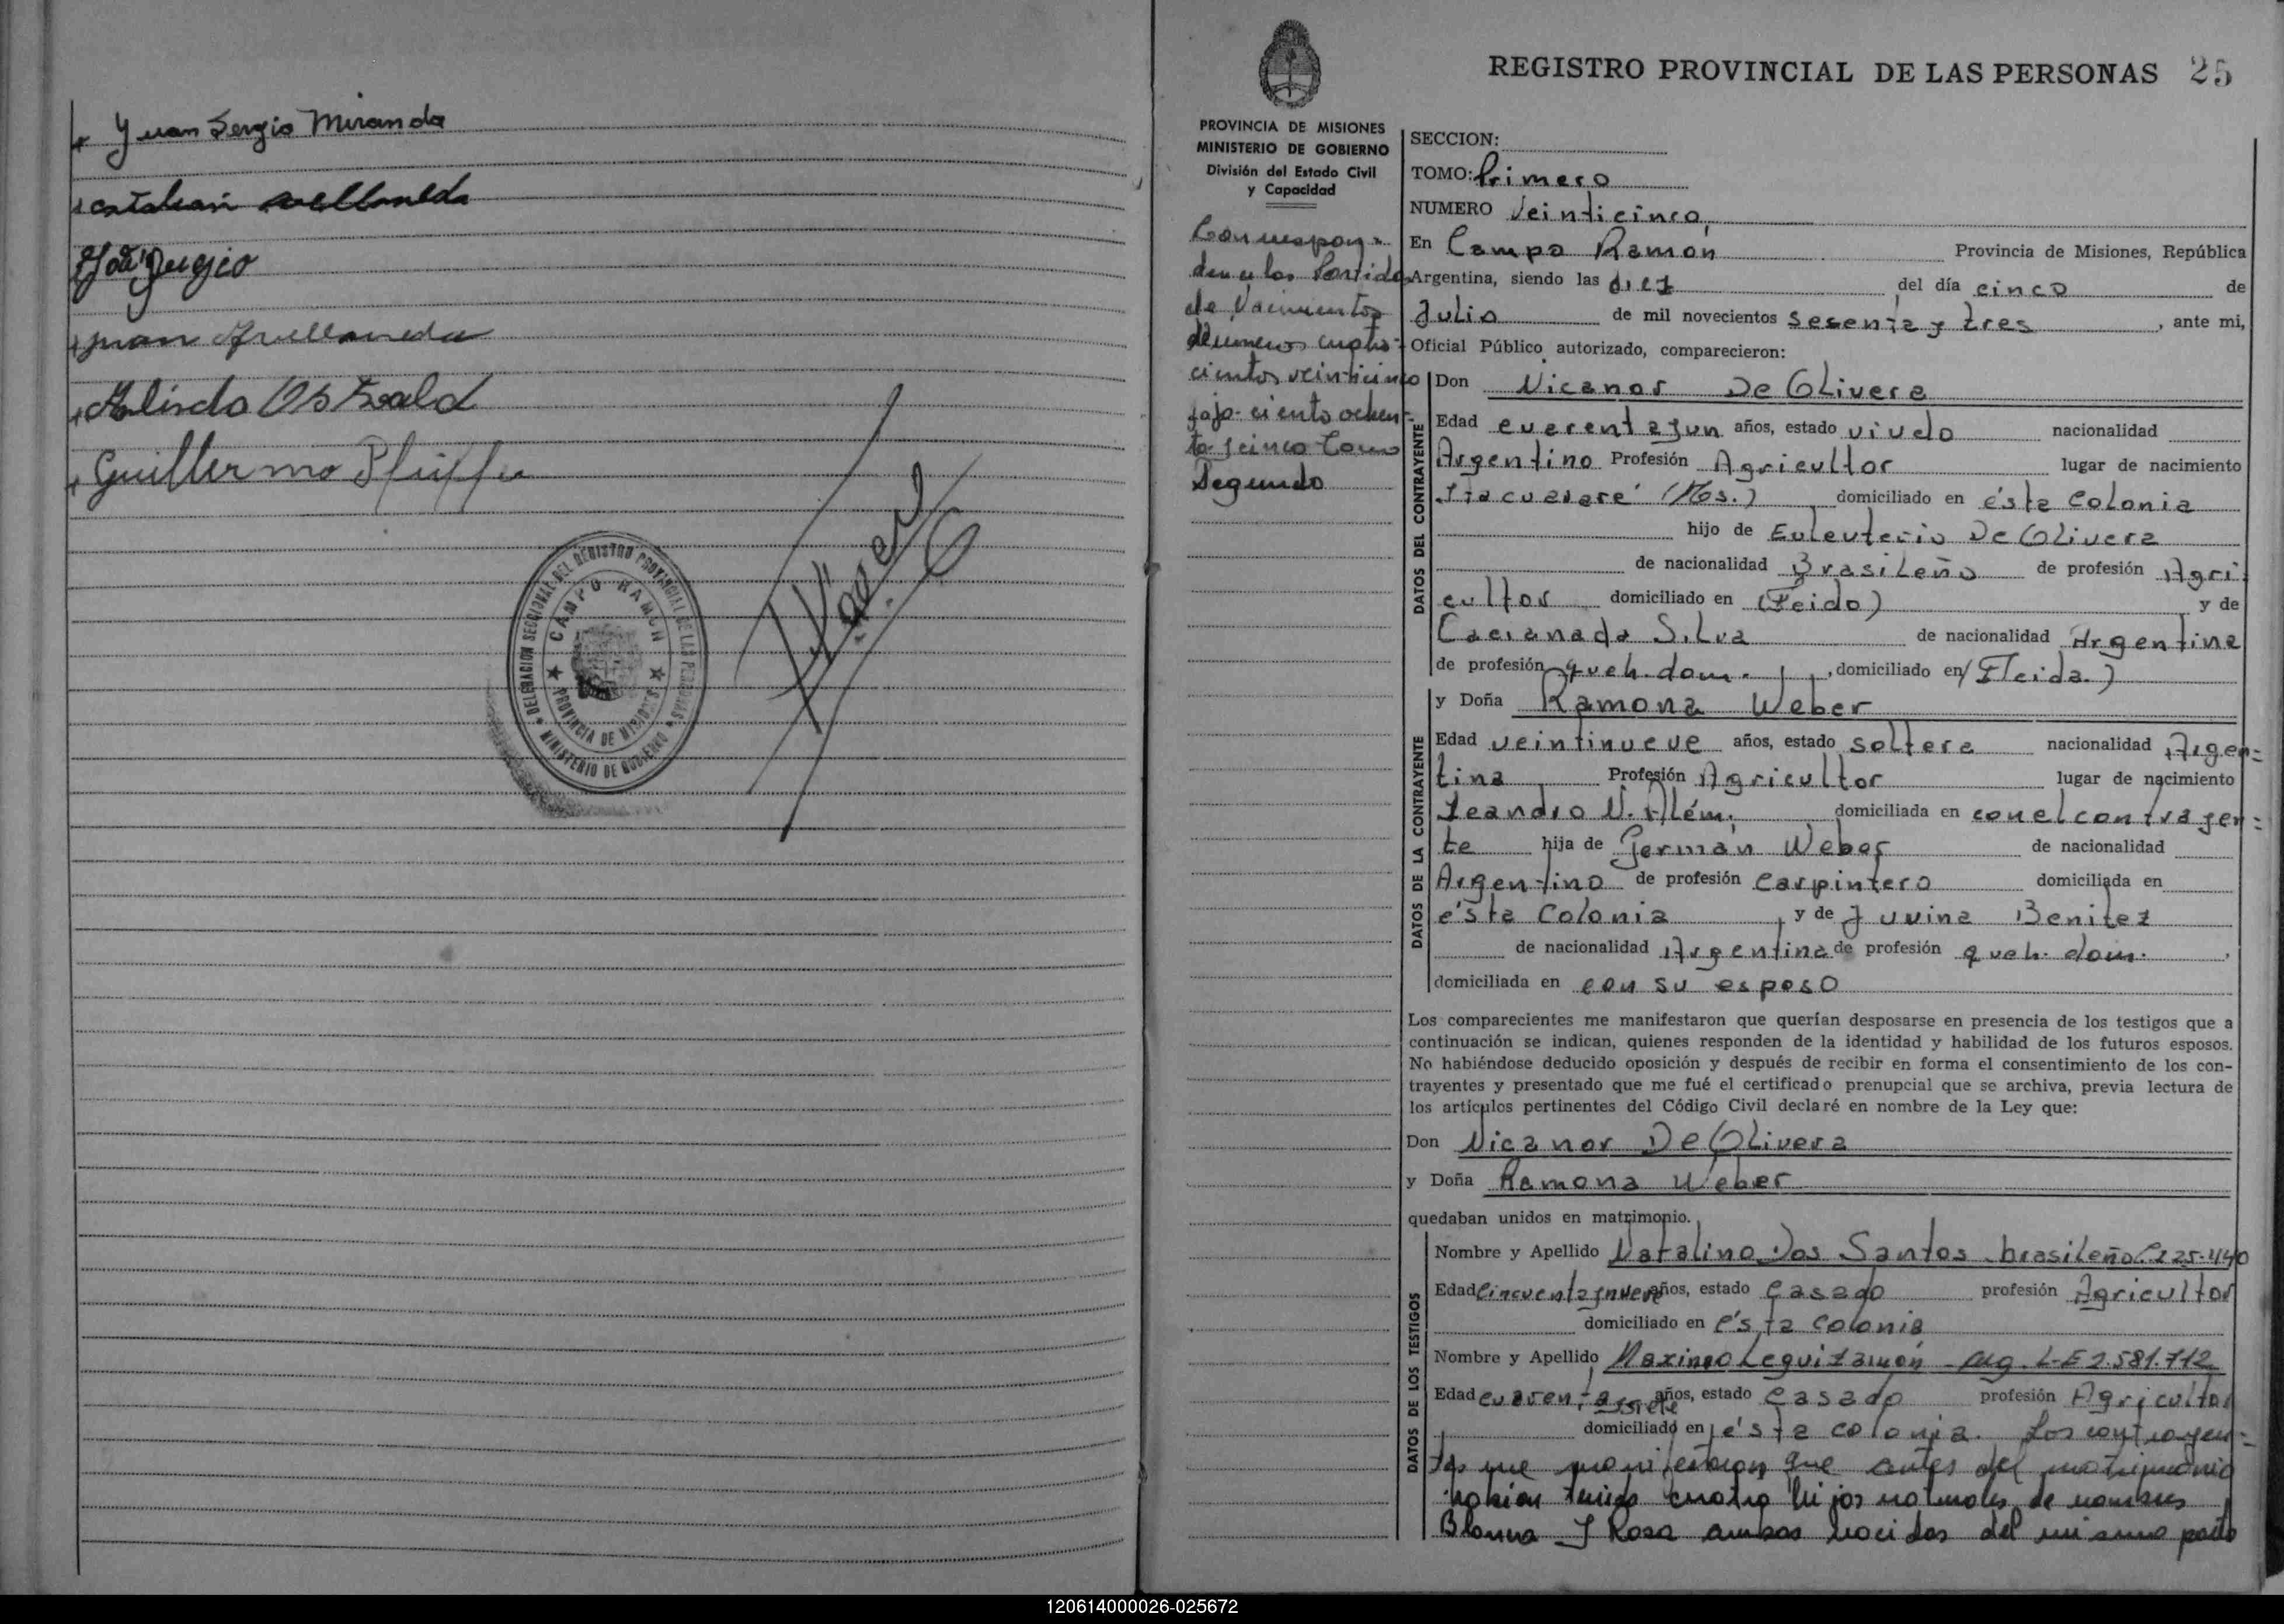 Juan Sergio Miranda
catalian avellaneda
Juan Avellaneda
Arlindo Ostwald
Guillermo Pfeiffer
DELEGACION SECCIONAL DEL REGISTRO PROVINCIAL DE LAS PERSONAS
CAMPO RAMON
PROVINCIA DE MISIONES
MINISTERIO DE GOBIERNO
REGISTRO PROVINCIAL DE LAS PERSONAS 25
PROVINCIA DE MISIONES
MINISTERIO DE GOBIERNO
División del Estado Civil
y Capacidad
Correspon-
den a las Partidas
de Nacimientos
números cuatro-
cientos veinticinco
fojo ciento ochen-
ta y cinco Tomo
Segundo
SECCION:
TOMO: Primero
NUMERO Veinticinco
En Campo Ramón Provincia de Misiones, República
Argentina, siendo las diez del día cinco de
Julio de mil novecientos sesenta y tres, ante mi,
Oficial Público autorizado, comparecieron:
DATOS DEL CONTRAYENTE
Don Nicanor De Olivera
Edad cuarenta y un años, estado viudo nacionalidad
Argentino Profesión Agricultor lugar de nacimiento
(Mos.) domiciliado en ésta Colonia
hijo de Euleuterio De Olivera
de nacionalidad Brasileño de profesión Agri-
cultor domiciliado en y de
Silva de nacionalidad Argentina
de profesión queh. dom., domiciliado en
DATOS DE LA CONTRAYENTE
y Doña Ramona Weber
Edad veintinueve años, estado soltera nacionalidad Argen=
tina Profesión Agricultor lugar de nacimiento
Leandro N. Além. domiciliada en con el contrayen=
te hija de Germán Weber de nacionalidad
Argentino de profesión Carpintero domiciliada en
ésta Colonia, y de Juvina Benitez
de nacionalidad Argentina de profesión queh. dom.
domiciliada en con su esposo
Los comparecientes me manifestaron que querían desposarse en presencia de los testigos que a
continuación se indican, quienes responden de la identidad y habilidad de los futuros esposos.
No habiéndose deducido oposición y después de recibir en forma el consentimiento de los con-
trayentes y presentado que me fué el certificado prenupcial que se archiva, previa lectura de
los artículos pertinentes del Código Civil declaré en nombre de la Ley que:
Don Nicanor De Olivera
y Doña Ramona Weber
quedaban unidos en matrimonio.
DATOS DE LOS TESTIGOS
Nombre y Apellido Natalino Dos Santos brasileño 25.440
Edad Cincuenta y nueve años, estado Casado profesión Agricultor
domiciliado en ésta Colonia
Nombre y Apellido Maximo Leguizamón Arg. L-E 2.581.712
Edad cuarenta y siete años, estado Casado profesión Agricultor
domiciliado en ésta colonia. Los contrayen=
tes me manifestaron que antes del matrimonio
habían tenido cuatro hijos naturales de nombres
Blanca y Rosa ambas nacidas del mismo parto
120614000026-025672